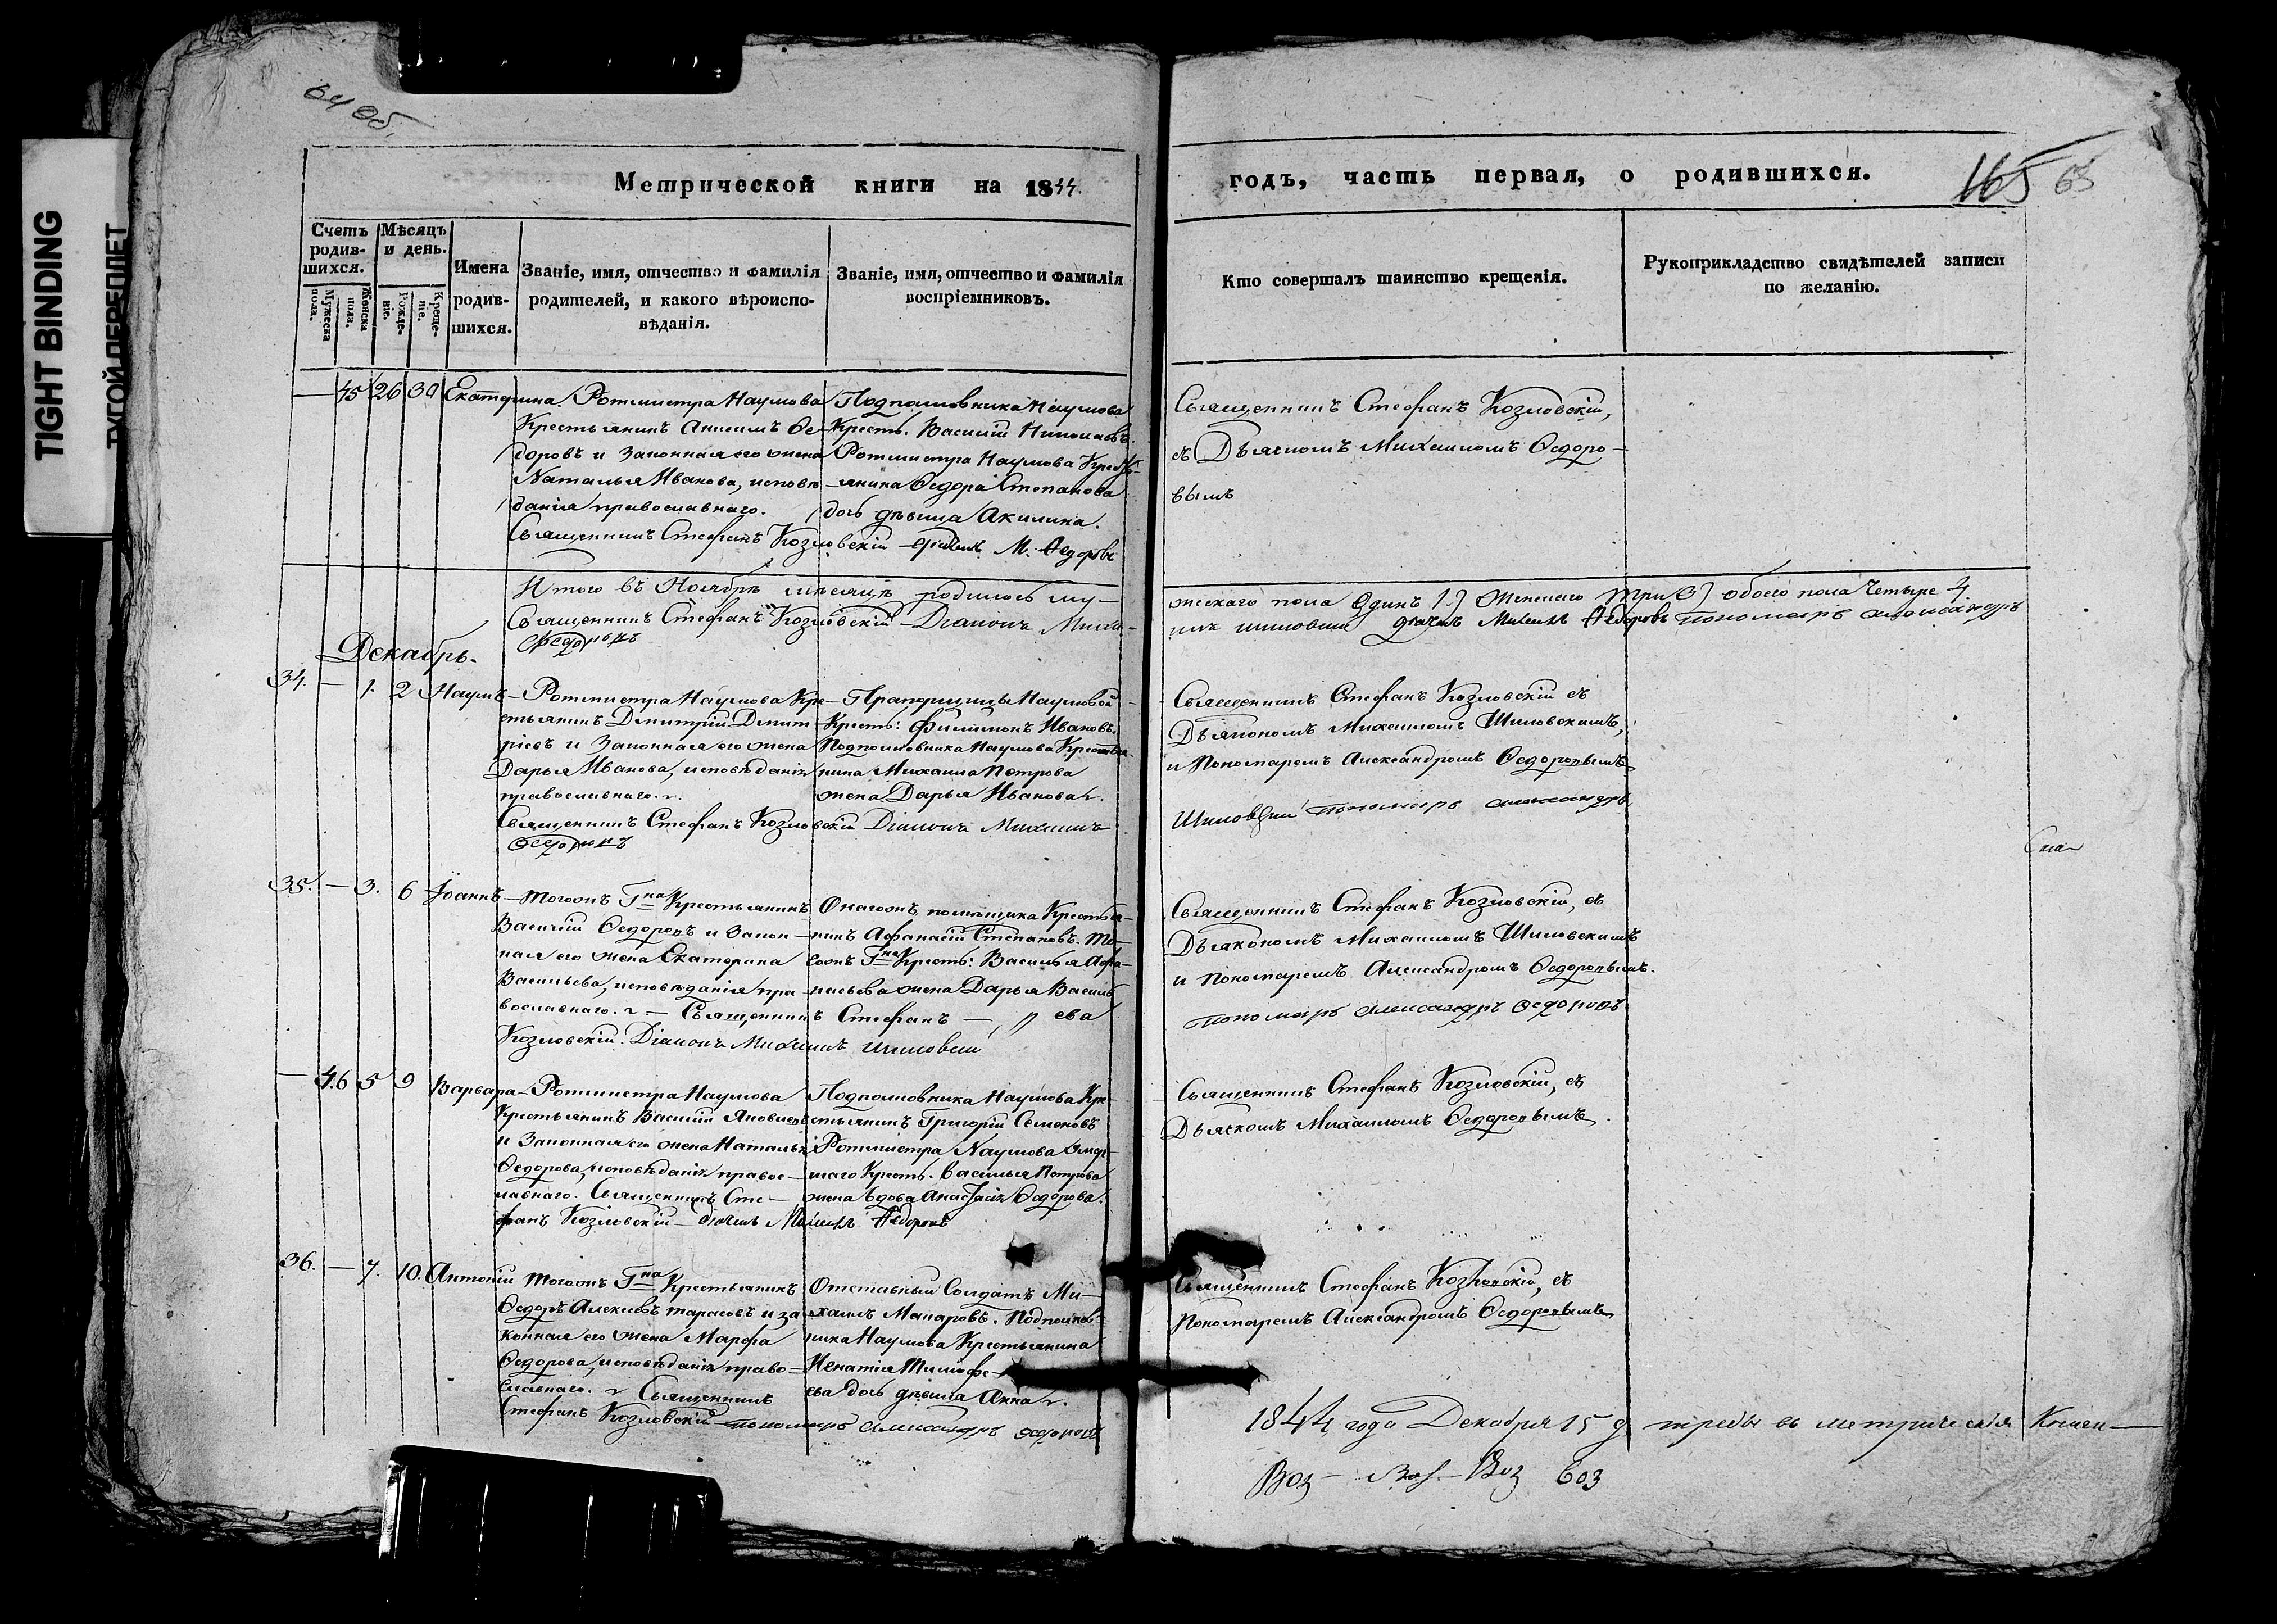 64 об.
TIGHT BINDING
ТУГОЙ ПЕРЕПЛЕТ
Метрической книги на 1844.
годъ, часть первая, о родившихся.
165 65
Счетъ родив-шихся.
Мужеска пола.
Женска пола.
Мѣсяцъ и день.
Рожде-ніе.
Креще-ніе.
Имена родив-шихся.
Званіе, имя, отчество и фамилія родителей, и какого вѣроиспо-вѣданія.
Званіе, имя, отчество и фамилія воспріемниковъ.
Кто совершалъ таинство крещенія.
Рукоприкладство свидѣтелей записи по желанію.
— 45 26 30 Екатерина.
Ротмистра Наумова
Крестьянинъ Анисимъ Ѳе-
доровъ и Законная его жена
Наталья Иванова, исповѣ-
данія православнаго.
Подполковника Наумова
Кресть. Василій Николаевъ.
Ротмистра Наумова Кресть-
янина Ѳедора Степанова
дочь дѣвица Акилина.
Священникъ Стефанъ Козловскій дьячекъ М. Ѳедоровъ
Священникъ Стефанъ Козловскій,
съ Дьячкомъ Михаиломъ Ѳедоро-
вымъ
Итого въ Ноябрѣ мѣсяцѣ родилось му-
жескаго пола Одинъ 1.) Женскаго три 3) обоего пола Четыре 4
Священникъ Стефанъ Козловскій Діаконъ Миха-
илъ Шиловскій дьячекъ Михаилъ Ѳедоровъ пономарь Александръ
Ѳедоровъ
Декабрь.
34. — 1. 2 Наумъ
Ротмистра Наумова Кре-
стьянинъ Дмитрій Дмит-
ріевъ и Законная его жена
Дарья Иванова, исповѣданія
православнаго.
Прапорщицы Наумовой
Кресть: Филимонъ Ивановъ.
Подполковника Наумова Крестья
нина Михаила Петрова
жена Дарья Иванова.
Священникъ Стефанъ Козловскій Діаконъ Михаилъ
Ѳедоровъ
Священникъ Стефанъ Козловскій съ
Діякономъ Михаиломъ Шиловскимъ,
и Пономаремъ Александромъ Ѳедоровымъ
Шиловскій пономарь Александръ
35. — 3. 6 Іоаннъ
Тогожъ Гна Крестьянинъ
Василій Ѳедоровъ и Закон-
ная его жена Екатерина
Васильева, исповѣданія пра-
вославнаго. — Священникъ Стефанъ —
Козловскій. Діаконъ Михаилъ Шиловскій
Онагожъ помѣщика Крестья-
нинъ Афанасій Степановъ. То-
гожъ Гна Кресть: Василья Афа-
насьева жена Дарья Василь
ева
Священникъ Стефанъ Козловскій, съ
Дьякономъ Михаиломъ Шиловскимъ
и Пономаремъ Александромъ Ѳедоровымъ.
пономарь Александръ Ѳедоровъ
— 46 5 9 Варвара
Ротмистра Наумова
Крестьянинъ Василій Яковлевъ
и Законная его жена Наталья
Ѳедорова, исповѣданія правос-
лавнаго. Священникъ Сте-
фанъ Козловскій дьячекъ Михаилъ Ѳедоровъ
Подполковника Наумова Кре-
стьянинъ Григорій Семеновъ
Ротмистра Наумова Умер-
шаго Кресть. Василья Петрова
жена вдова Анастасія Ѳедорова.
Священникъ Стефанъ Козловскій, съ
Дьячкомъ Михаиломъ Ѳедоровымъ.
36. — 7. 10. Антоній
Тогожъ Гна Крестьянинъ
Ѳедоръ Алексѣевъ Тарасовъ и за
конная его жена Марфа
Ѳедорова, исповѣданія право-
славнаго. Священникъ
Стефанъ Козловскій пономарь Александръ Ѳедоровъ
Отставный Солдатъ Ми-
хаилъ Макаровъ. Подполков-
ника Наумова Крестьянина
Игнатія Тимофе-
ева дочь дѣвица Анна.
Священникъ Стефанъ Козловскій, съ
Пономаремъ Александромъ Ѳедоровымъ
1844 года Декабря 15 д